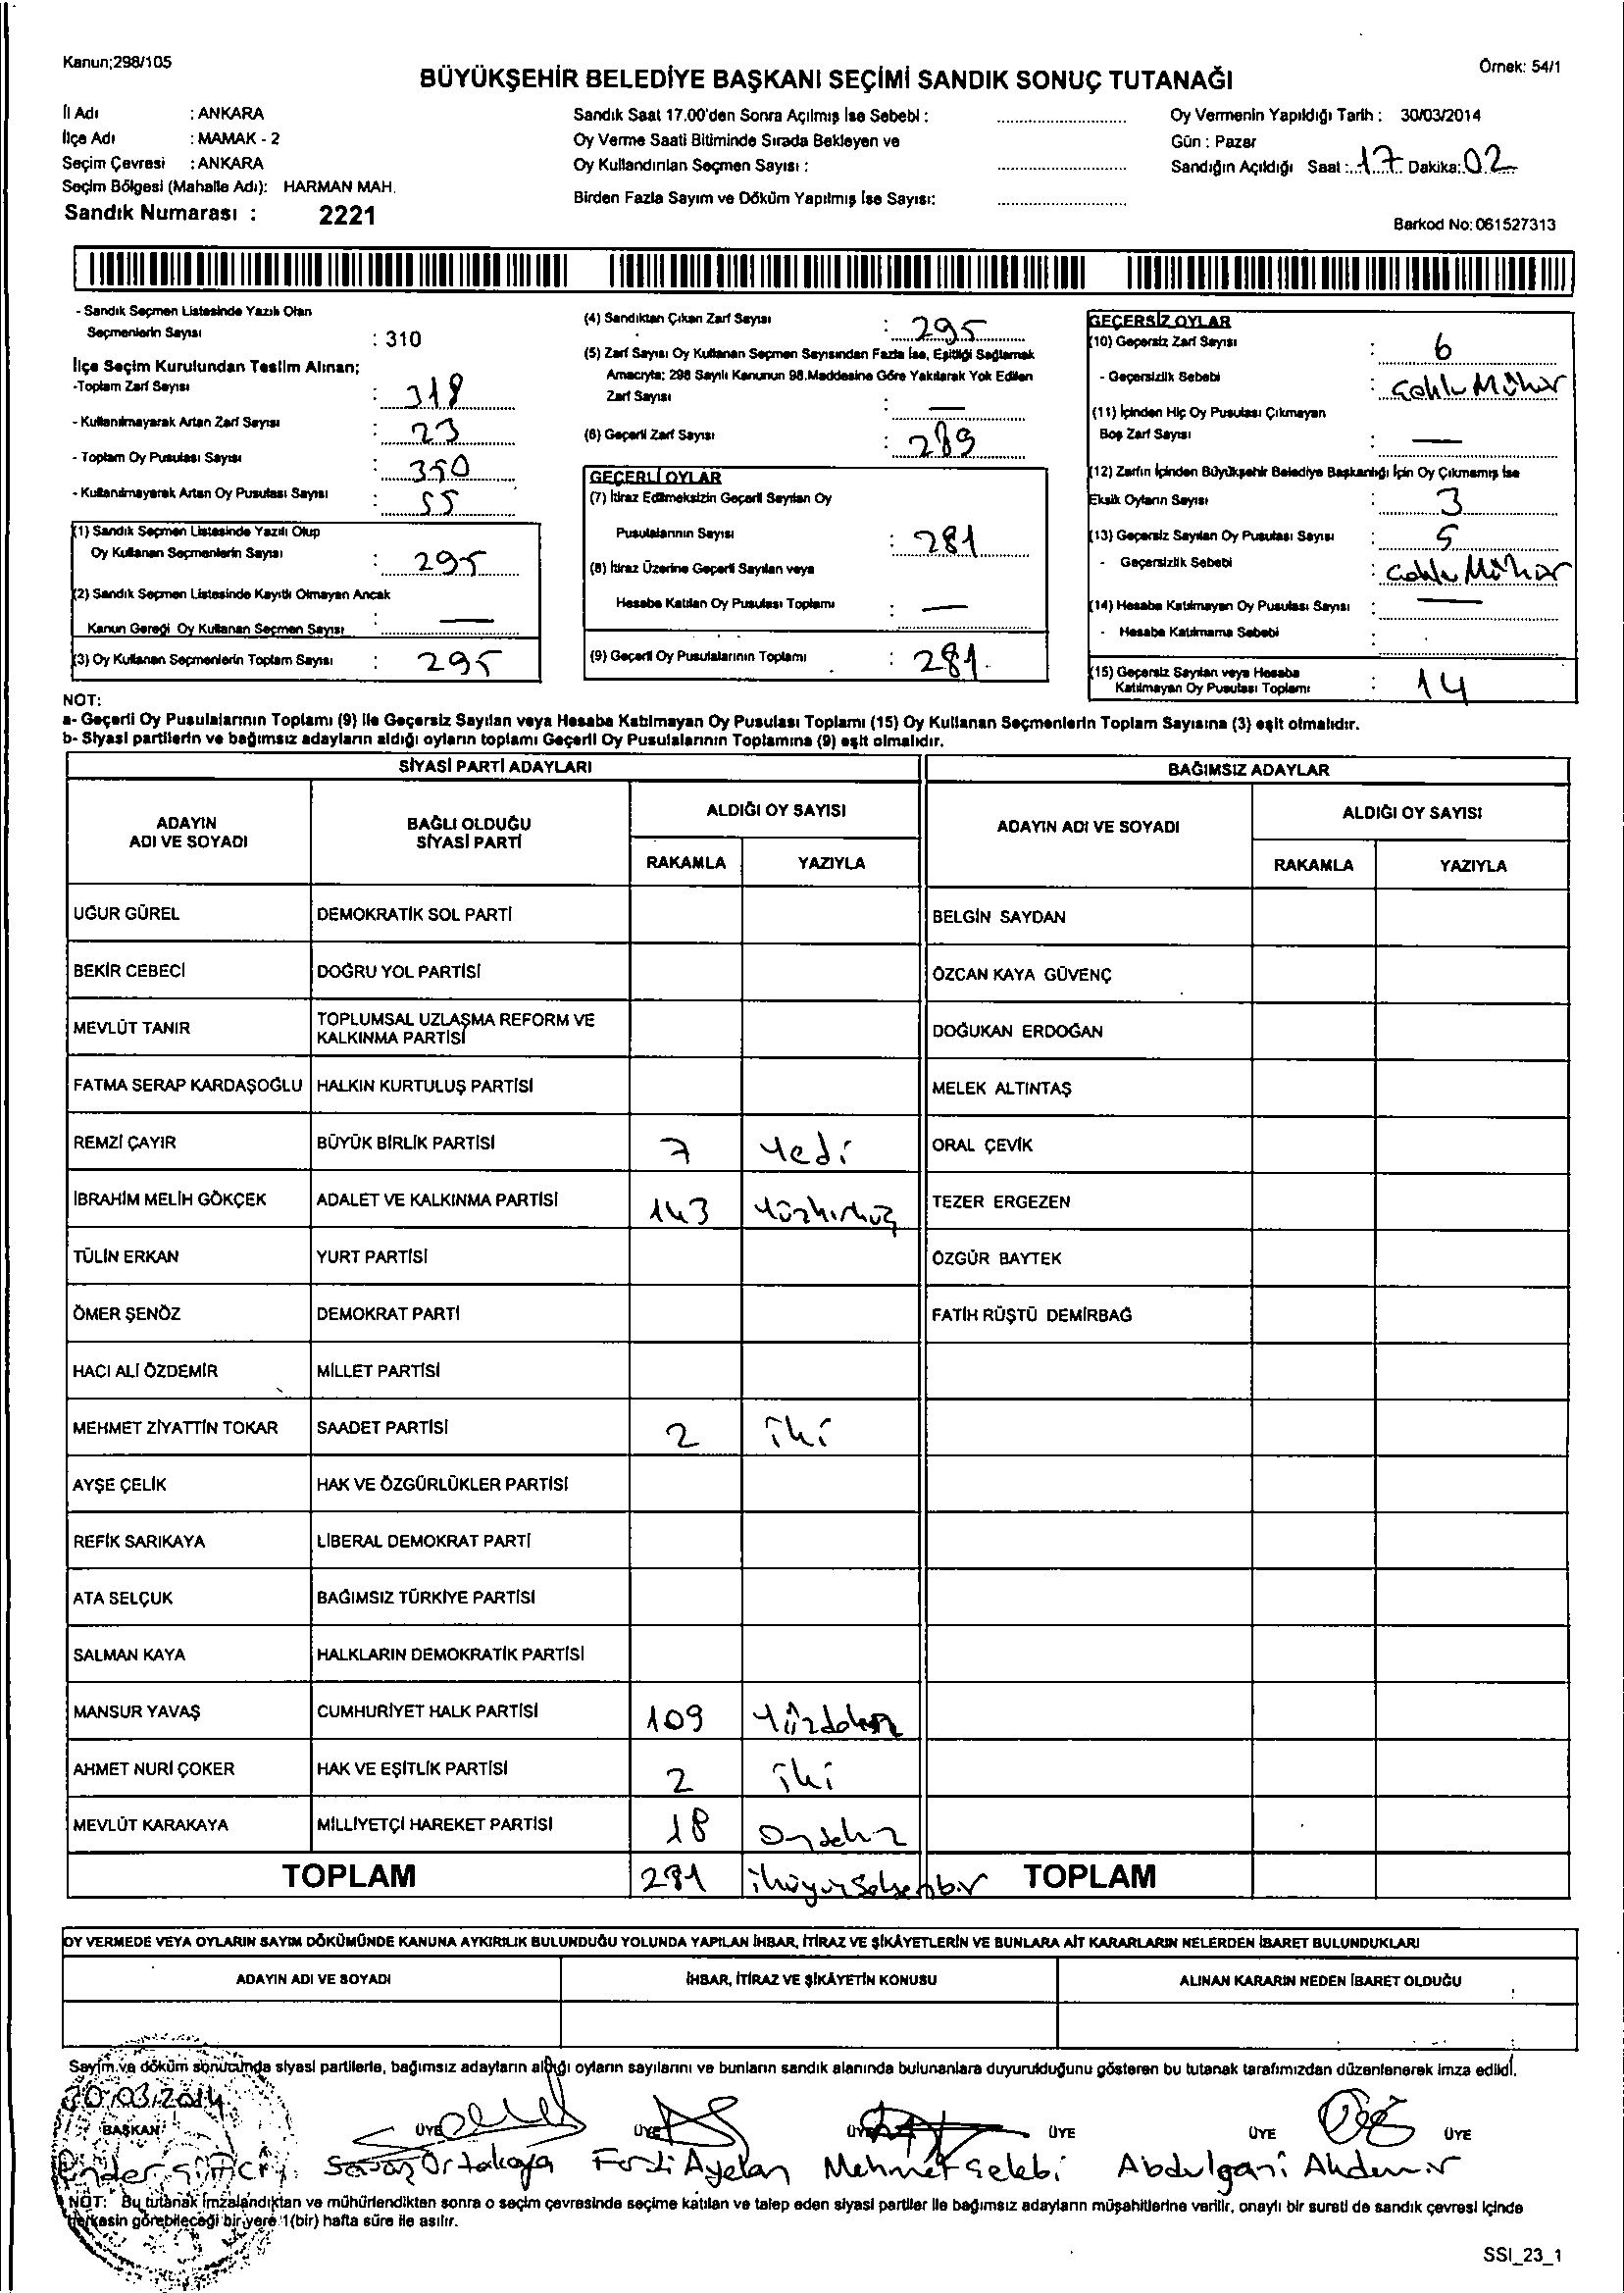 Kanun;298/105
Örnek: 54/1
BÜYÜKŞEHİR BELEDİYE BAŞKANI SEÇİMİ SANDIK SONUÇ TUTANAĞI
İl Adı : ANKARA
İlçe Adı : MAMAK - 2
Seçim Çevresi : ANKARA
Seçim Bölgesi (Mahalle Adı): HARMAN MAH.
Sandık Numarası : 2221
Sandık Saat 17.00'den Sonra Açılmış İse Sebebi :
Oy Verme Saati Bitiminde Sırada Bekleyen ve
Oy Kullandırılan Seçmen Sayısı :
Birden Fazla Sayım ve Döküm Yapılmış İse Sayısı:
Oy Vermenin Yapıldığı Tarih : 30/03/2014
Gün : Pazar
Sandığın Açıldığı Saat : 17 Dakika: 02
Barkod No: 061527313
- Sandık Seçmen Listesinde Yazılı Olan
Seçmenlerin Sayısı : 310
İlçe Seçim Kurulundan Teslim Alınan;
-Toplam Zarf Sayısı : 318
- Kullanılmayarak Artan Zarf Sayısı : 23
- Toplam Oy Pusulası Sayısı : 350
- Kullanılmayarak Artan Oy Pusulası Sayısı : 55
(1) Sandık Seçmen Listesinde Yazılı Olup
Oy Kullanan Seçmenlerin Sayısı : 295
(2) Sandık Seçmen Listesinde Kayıtlı Olmayan Ancak
Kanun Gereği Oy Kullanan Seçmen Sayısı : —
(3) Oy Kullanan Seçmenlerin Toplam Sayısı : 295
(4) Sandıktan Çıkan Zarf Sayısı : 295
(5) Zarf Sayısı Oy Kullanan Seçmen Sayısından Fazla İse, Eşitliği Sağlamak
Amacıyla; 298 Sayılı Kanunun 98.Maddesine Göre Yakılarak Yok Edilen
Zarf Sayısı : —
(6) Geçerli Zarf Sayısı : 289
GEÇERLİ OYLAR
(7) İtiraz Edilmeksizin Geçerli Sayılan Oy
Pusulalarının Sayısı : 281
(8) İtiraz Üzerine Geçerli Sayılan veya
Hesaba Katılan Oy Pusulası Toplamı : —
(9) Geçerli Oy Pusulalarının Toplamı : 281
GEÇERSİZ OYLAR
(10) Geçersiz Zarf Sayısı : 6
- Geçersizlik Sebebi : Çoklu Mühür
(11) İçinden Hiç Oy Pusulası Çıkmayan
Boş Zarf Sayısı : —
(12) Zarfın İçinden Büyükşehir Belediye Başkanlığı İçin Oy Çıkmamış İse
Eksik Oyların Sayısı : 3
(13) Geçersiz Sayılan Oy Pusulası Sayısı : 5
- Geçersizlik Sebebi : Çoklu Mühür
(14) Hesaba Katılmayan Oy Pusulası Sayısı : —
- Hesaba Katılmama Sebebi :
(15) Geçersiz Sayılan veya Hesaba
Katılmayan Oy Pusulası Toplamı : 14
NOT:
a- Geçerli Oy Pusulalarının Toplamı (9) ile Geçersiz Sayılan veya Hesaba Katılmayan Oy Pusulası Toplamı (15) Oy Kullanan Seçmenlerin Toplam Sayısına (3) eşit olmalıdır.
b- Siyasi partilerin ve bağımsız adayların aldığı oyların toplamı Geçerli Oy Pusulalarının Toplamına (9) eşit olmalıdır.
SİYASİ PARTİ ADAYLARI BAĞIMSIZ ADAYLAR
ADAYIN ADI VE SOYADI BAĞLI OLDUĞU SİYASİ PARTİ ALDIĞI OY SAYISI ADAYIN ADI VE SOYADI ALDIĞI OY SAYISI
RAKAMLA YAZIYLA RAKAMLA YAZIYLA
UĞUR GÜREL DEMOKRATİK SOL PARTİ BELGİN SAYDAN
BEKİR CEBECİ DOĞRU YOL PARTİSİ ÖZCAN KAYA GÜVENÇ
MEVLÜT TANIR TOPLUMSAL UZLAŞMA REFORM VE KALKINMA PARTİSİ DOĞUKAN ERDOĞAN
FATMA SERAP KARDAŞOĞLU HALKIN KURTULUŞ PARTİSİ MELEK ALTINTAŞ
REMZİ ÇAYIR BÜYÜK BİRLİK PARTİSİ 7 Yedi ORAL ÇEVİK
İBRAHİM MELİH GÖKÇEK ADALET VE KALKINMA PARTİSİ 143 Yüzkırküç TEZER ERGEZEN
TÜLİN ERKAN YURT PARTİSİ ÖZGÜR BAYTEK
ÖMER ŞENÖZ DEMOKRAT PARTİ FATİH RÜŞTÜ DEMİRBAĞ
HACI ALİ ÖZDEMİR MİLLET PARTİSİ
MEHMET ZİYATTİN TOKAR SAADET PARTİSİ 2 iki
AYŞE ÇELİK HAK VE ÖZGÜRLÜKLER PARTİSİ
REFİK SARIKAYA LİBERAL DEMOKRAT PARTİ
ATA SELÇUK BAĞIMSIZ TÜRKİYE PARTİSİ
SALMAN KAYA HALKLARIN DEMOKRATİK PARTİSİ
MANSUR YAVAŞ CUMHURİYET HALK PARTİSİ 109 Yüzdokuz
AHMET NURİ ÇOKER HAK VE EŞİTLİK PARTİSİ 2 iki
MEVLÜT KARAKAYA MİLLİYETÇİ HAREKET PARTİSİ 18 Onsekiz
TOPLAM 281 ikiyüzseksenbir TOPLAM
OY VERMEDE VEYA OYLARIN SAYIM DÖKÜMÜNDE KANUNA AYKIRILIK BULUNDUĞU YOLUNDA YAPILAN İHBAR, İTİRAZ VE ŞİKÂYETLERİN VE BUNLARA AİT KARARLARIN NELERDEN İBARET BULUNDUKLARI
ADAYIN ADI VE SOYADI İHBAR, İTİRAZ VE ŞİKÂYETİN KONUSU ALINAN KARARIN NEDEN İBARET OLDUĞU
Sayım ve döküm sonucunda siyasi partilerle, bağımsız adayların aldığı oyların sayılarını ve bunların sandık alanında bulunanlara duyurulduğunu gösteren bu tutanak tarafımızdan düzenlenerek imza edildi.
30/03/2014
BAŞKAN ÜYE ÜYE ÜYE ÜYE ÜYE ÜYE
Ender Savaş Ortakaya Ferdi Ayelan Mehmet Çelebi Abdulgani Akdemir
NOT: Bu tutanak imzalandıktan ve mühürlendikten sonra o seçim çevresinde seçime katılan ve talep eden siyasi partiler ile bağımsız adayların müşahitlerine verilir, onaylı bir sureti de sandık çevresi içinde
herkesin görebileceği bir yere 1(bir) hafta süre ile asılır.
SSI_23_1